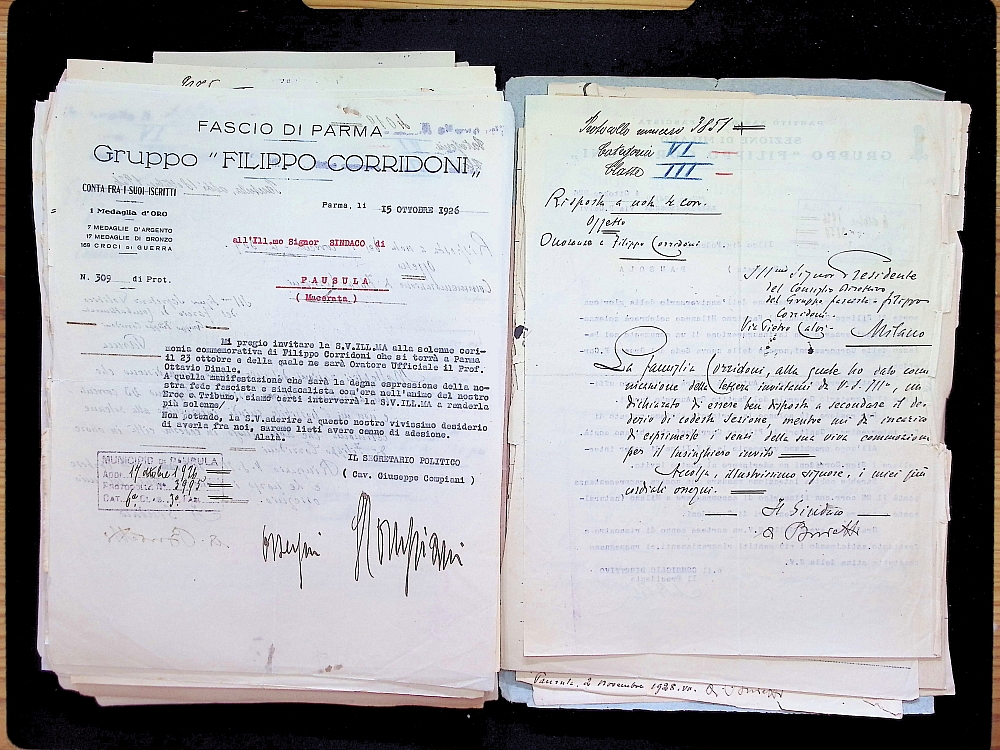 FASCIO DI PARMA
Gruppo "FILIPPO CORRIDONI„
CONTA FRA I SUOI ISCRITTI
1 Medaglia d'ORO
7 MEDAGLIE D'ARGENTO
17 MEDAGLIE DI BRONZO
169 CROCI DI GUERRA
Parma, li 15 OTTOBRE 1926
all'Ill.mo Signor SINDACO di
N. 309 di Prot.
PAUSULA
( Macerata )
Mi pregio invitare la S.V.ILL.MA alla solenne ceri-
monia commemorativa di Filippo Corridoni che si terrà a Parma
il 23 ottobre e della quale ne sarà Oratore Ufficiale il Prof.
Ottavio Dinale.
A quella manifestazione che sarà la degna espressione della no-
stra fede fascista e sindacalista com'era nell'animo del nostro
Eroe e Tribuno, siamo certi interverrà la S.V.ILL.MA a renderla
più solenne/
Non potendo, la S.V.aderire a questo nostro vivissimo desiderio
di averla fra noi, saremo lieti avere cenno di adesione.
Alalà.
IL SEGRETARIO POLITICO
( Cav. Giuseppe Compiani )
MUNICIPIO di PAUSULA
17 ottobre 1926
Protocollo N. 3995
CAT. 6a CLAS. 3a
Protocollo numero 3851
Categoria VI
Classe III
Risposta a nota
Oggetto
Onoranze a Filippo Corridoni
Ill.mo Signor Presidente
del Consiglio Direttivo
del Gruppo fascista "Filippo
Corridoni"
Via Pietro Calvi
Milano
La famiglia Corridoni, alla quale ho dato comu-
nicazione della lettera inviatami da V.S. Ill.ma, mi
dichiarato di essere ben disposta a secondare il de-
siderio di codesta Sezione, mentre mi da incarico
di esprimerle i sensi della sua viva commozione
per il lusinghiero invito
Accolga, illustrissimo signore, i miei più
cordiali ossequi.
Il Sindaco
Pausula, 2 novembre 1928.